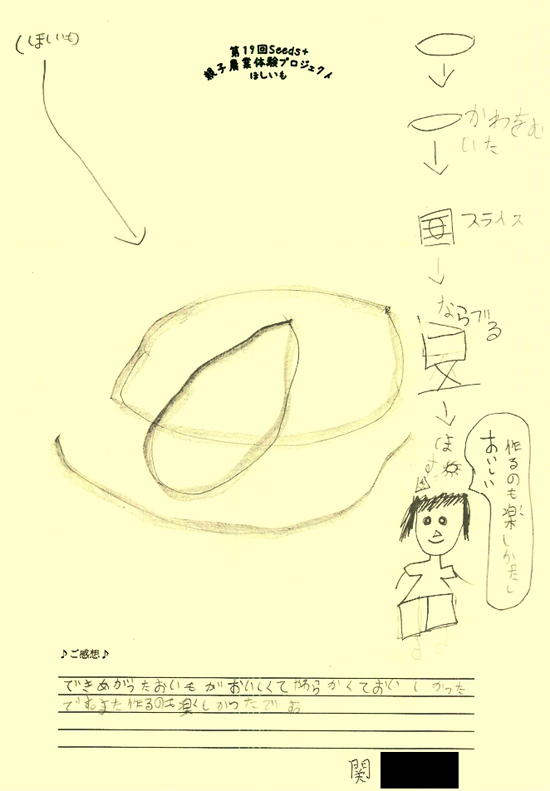 (ほしいも)
第19回Seeds+
親子農業体験プロジェクト
ほしいも
かわをむ
いた
スライス
ならべる
ほす
作るのも楽しかたし
おいしい
♪ご感想♪
できあがったおいもがおいしくてやわらかくておいしかった
でもまた作るのも楽しかったでお
関